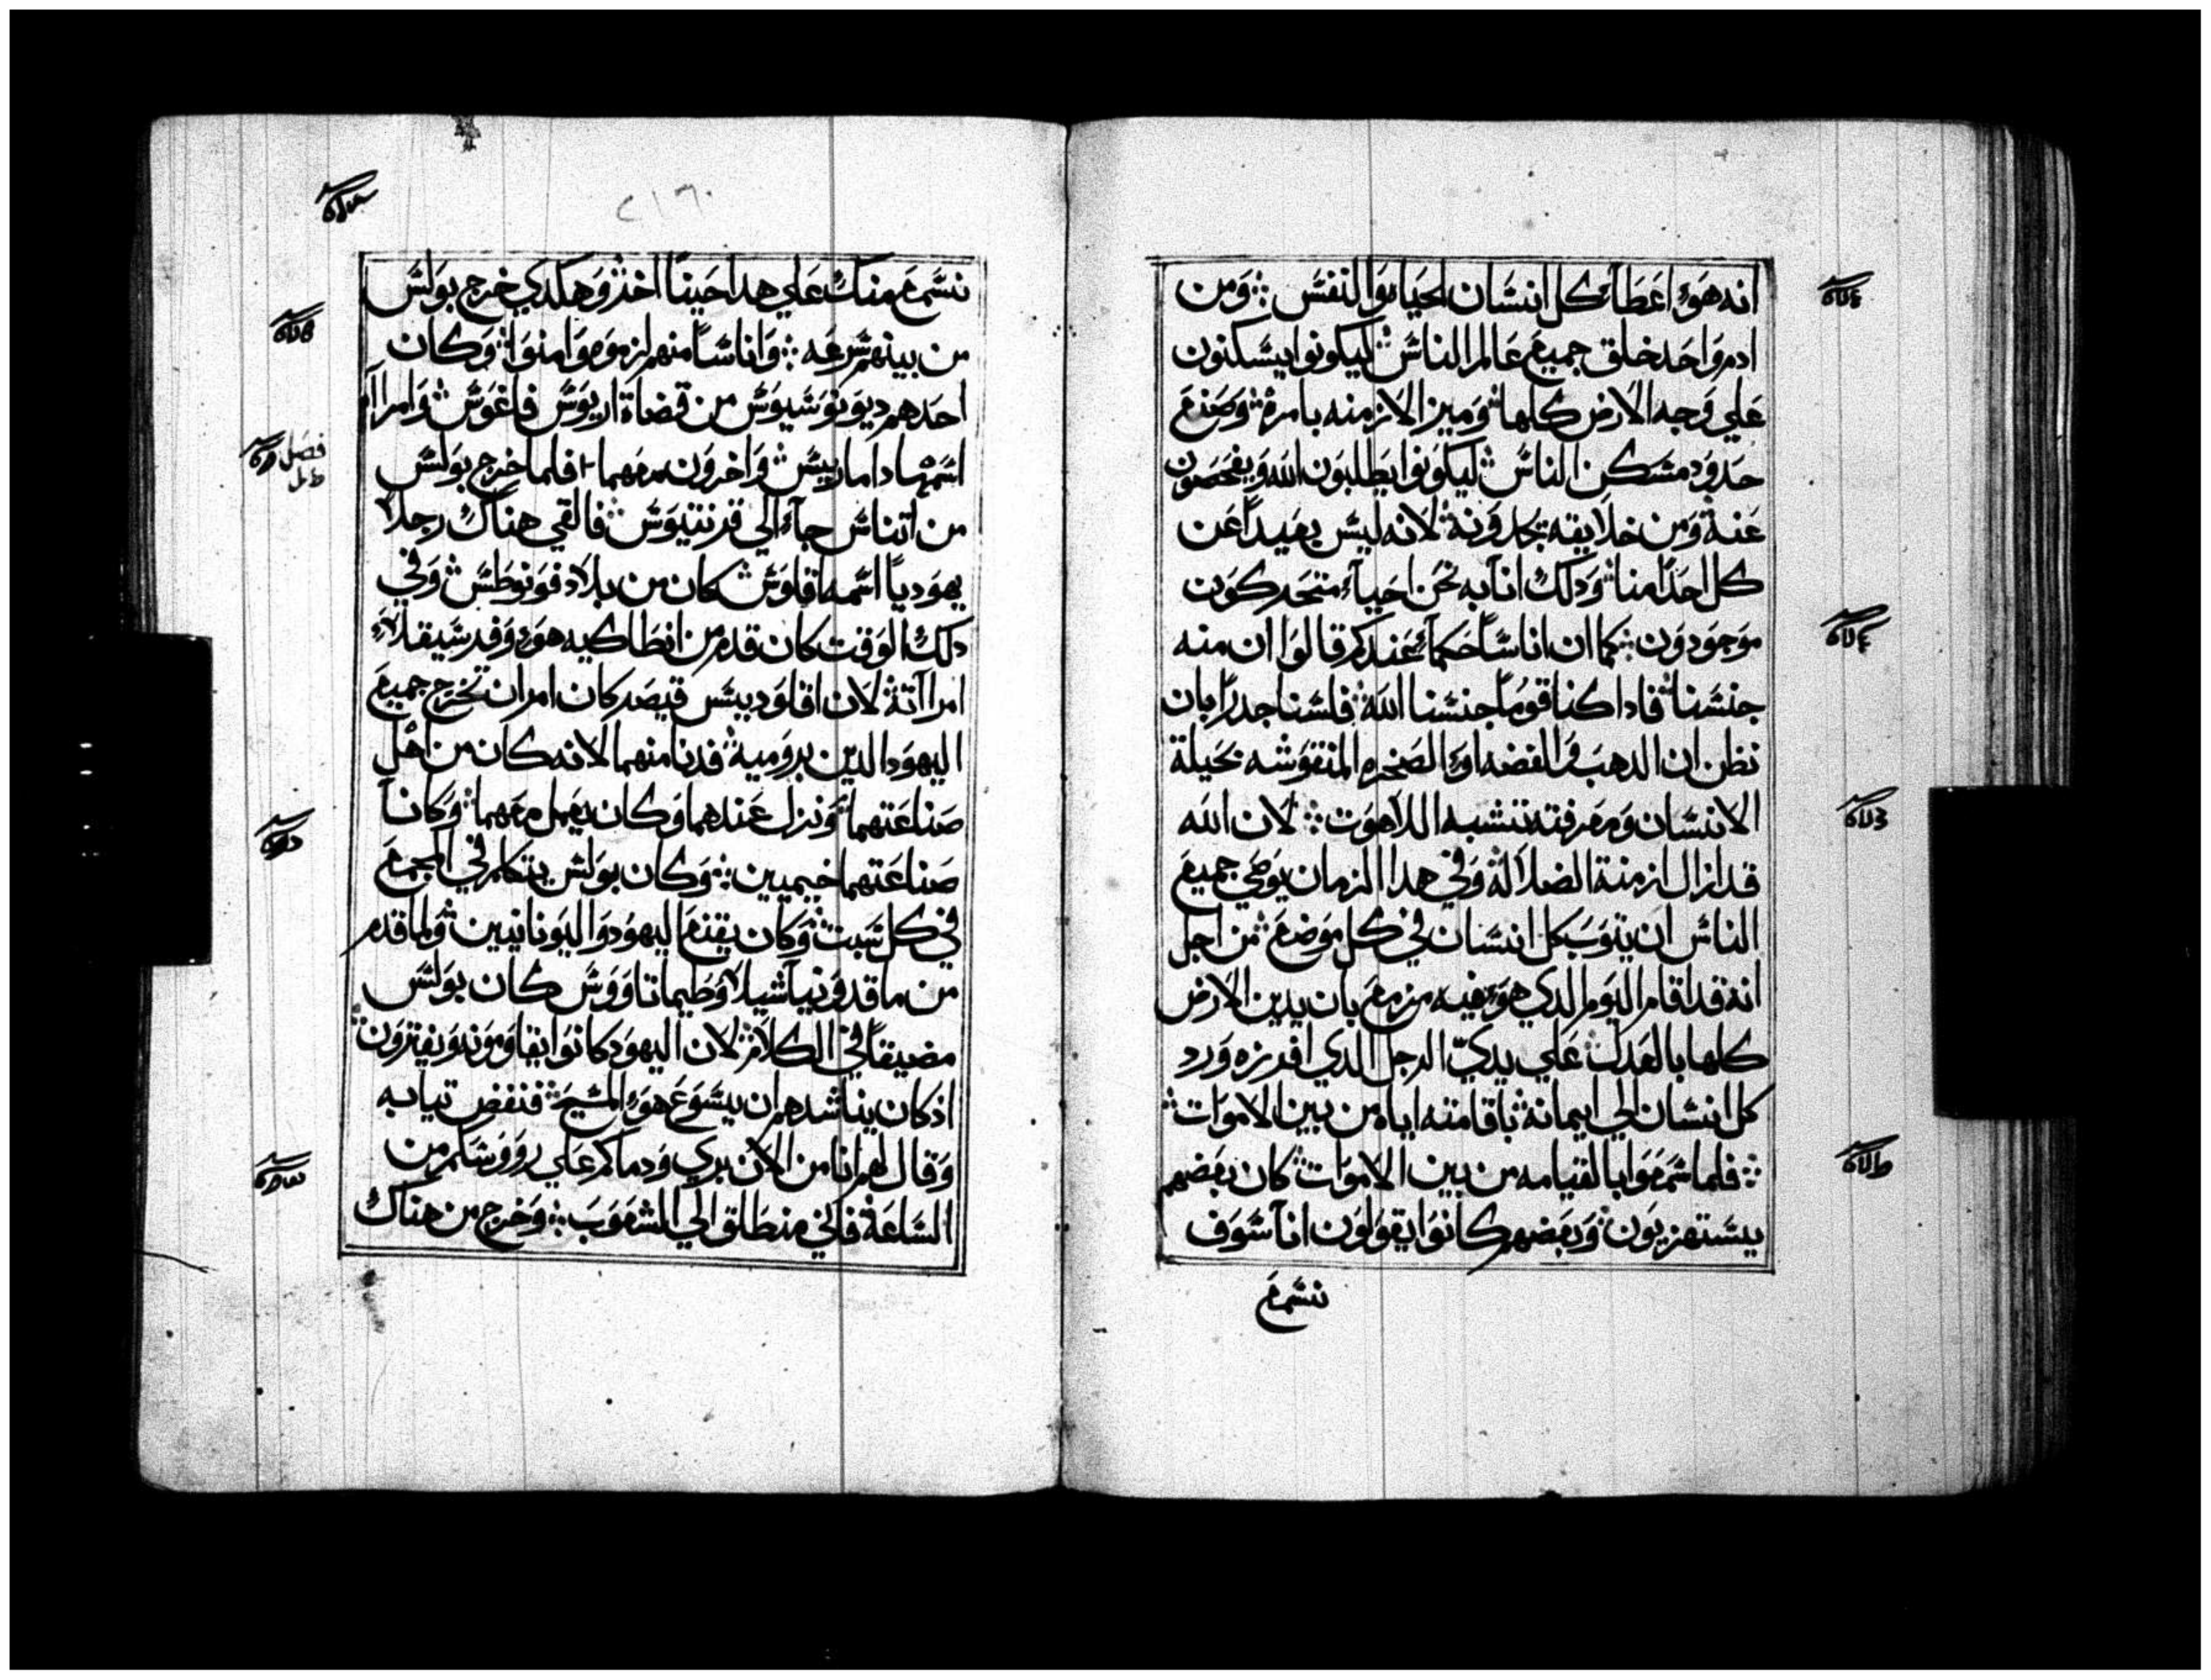 انه هوَ اعَطَا كل انسَان الحَياه وَالنفسَ ⁘ وَمن
ادم وَاحَد خلق جميعَ عَالم الناسَ ليكونوا يسَكنون
عَلي وَجه الارض كلها وَميز الازمنه بامره وَصَنعَ
حَدوَد مسَكن الناسَ ليكوَنوا يطَلبوَن الله وَيفحَصَون
عَنه وَمن خلايقه يجدوَنه لانه ليسَ بعَيداً عَن
كل احَداً منا وَدلك اننا به نحَن احَياء متحَركوَن
موَجوَدوَن ⁘ كما ان اناسَاً حَكماء عَندكم قالوَا ان منه
جنسَنا فادا كنا قوَماً جنسَنا الله فلسَنا جدراً بان
نظن ان الدهبَ وَالفضه اوَ الصَخره المنقوَشه بحَيلة
الانسَان وَمعَرفته تتشبه اللاهوَت ⁘ لان الله
قد ازال ازمنة الضلالة وَفي هدا الزمان يوَصَي جميعَ
الناسَ ان يتوَبَ كل انسَان في كل موَضعَ من اجل
انه قد اقام اليوَم الدي هوَ فيه مزمعَ بان يدين الارض
كلها بالعَدل عَلي يديّ الرجل الدي افرزه وَرد
كل انسَان الي ايمانه باقامته اياه من بين الاموَات
⁘ فلما سَمعَوَا بالقيامه من بين الاموَات كان بعَضهم
يسَتهزيوَن وَبعَضهم كانوَا يقوَلوَن اننا سَوَف
نسَمعَ
٢١٦
نسَمعَ منك عَلي هدا حَيناً اخر وَهكدي خرج بوَلسَ
من بينهم سَرعَه ⁘ وَاناسَاً منهم لزموَه وَامنوَا وَكان
احَدهم ديوَنوَسَيوَسَ من قضاة اريوَسَ فاغوَسَ وَامراآ
اسَمها داماريسَ وَاخروَن معَهما فلما خرج بوَلسَ
فصل
من اتناسَ جاء الي قرنتيوَسَ فالقي هناك رجلاً
يهوَدياً اسَمه اقلوَسَ كان من بلاد فوَنوَطسَ وَفي
دلك الوَقت كان قدم من انطَاكيه هوَ وَفرسَيقلا
امراآته لان اقلوَديسَ قيصَر كان امر ان تخرج جميعَ
اليهوَد الدين بروَمية فدنا منهما لانه كان من اهَل
صَناعَتهما وَنزل عَندهما وَكان يعَمل معَهما وَكانآ
صَناعَتهما خيميين ⁘ وَكان بوَلسَ يتكلم في المجمعَ
في كل سَبت وَكان يقنعَ اليهوَد وَاليوَنانيين وَلما قدم
من ماقدوَنيآ شيلا وَطَيماتاوَوَسَ كان بوَلسَ
مضيقاً في الكلام لان اليهوَد كانوَا يقاوَموَنه وَيفتروَن
اذ كان يناشدهم ان يسَوَعَ هوَ المسَيحَ فنفض تيابه
وَقال لهم انا من الان بري وَدماكم عَلي روَوَسَكم من
السَاعَة فاني منطَلق الي الشعَوَبَ ⁘ وَخرج من هناك